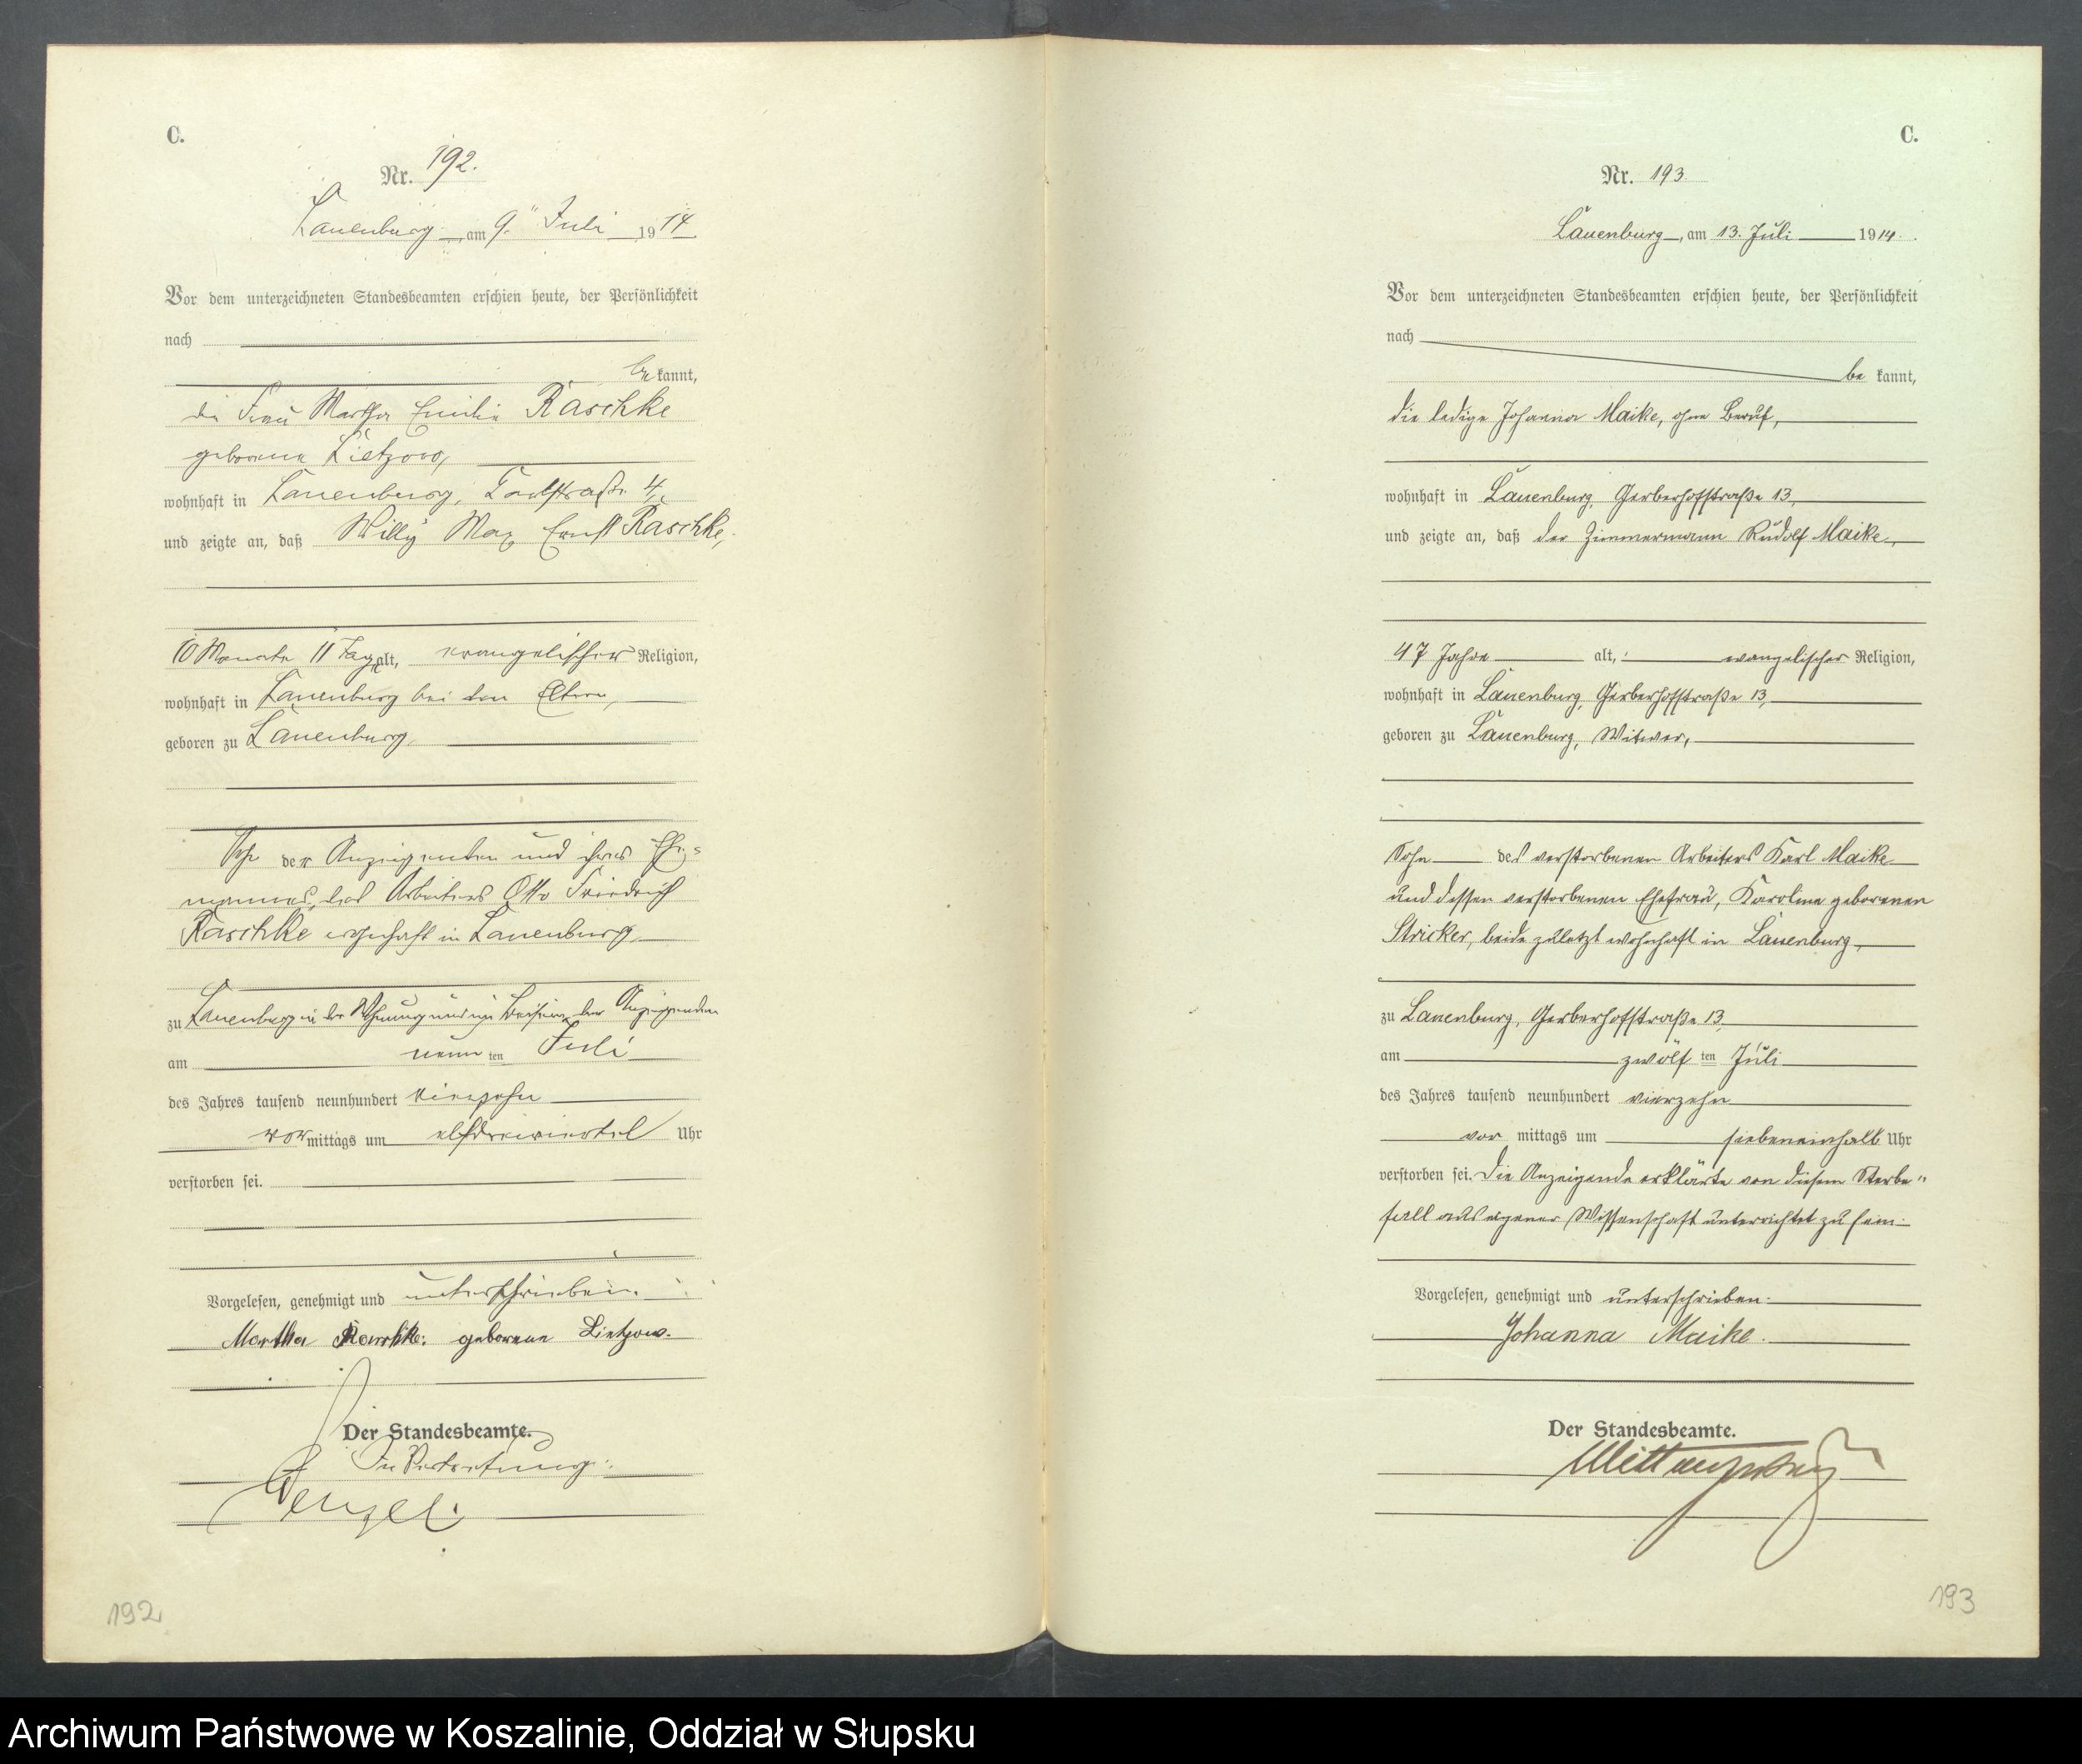 C.
Nr. 192.
Lauenburg, am 9. Juli 1914
Vor dem unterzeichneten Standesbeamten erschien heute, der Persönlichkeit
nach
bekannt,
die Frau Martha Emilie Raschke
geborene Lietzow,
wohnhaft in Lauenburg, 4,
und zeigte an, daß Willy Max Ernst Raschke,
10 Monate 11 Tage alt, evangelischer Religion,
wohnhaft in Lauenburg bei den Eltern,
geboren zu Lauenburg,
Sohn der Anzeigenden und ihres Ehe=
mannes, des Arbeiters Otto Friedrich
Raschke wohnhaft in Lauenburg,
zu Lauenburg in der Wohnung und im Beisein der Anzeigenden
am neunten Juli
des Jahres tausend neunhundert vierzehn
vormittags um elfdreiviertel Uhr
verstorben sei.
Vorgelesen, genehmigt und unterschrieben.
Martha Raschke. geborene Lietzow.
Der Standesbeamte.
In Vertretung.
192
C.
Nr. 193
Lauenburg, am 13. Juli 1914.
Vor dem unterzeichneten Standesbeamten erschien heute, der Persönlichkeit
nach
bekannt,
die ledige Johanna Maike, ohne Beruf,
wohnhaft in Lauenburg, Gerberhofstraße 13,
und zeigte an, daß der Zimmermann Rudolf Maike,
47 Jahre alt, evangelischer Religion,
wohnhaft in Lauenburg, Gerberhofstraße 13,
geboren zu Lauenburg, Witwer,
Sohn des verstorbenen Arbeiters Karl Maike
und dessen verstorbenen Ehefrau, Karoline geborenen
Stricker, beide zuletzt wohnhaft in Lauenburg,
zu Lauenburg, Gerberhofstraße 13,
am zwölften Juli
des Jahres tausend neunhundert vierzehn
vormittags um siebeneinhalb Uhr
verstorben sei. Die Anzeigende erklärte von diesem Sterbe"
fall aus eigener Wissenschaft unterrichtet zu sein.
Vorgelesen, genehmigt und unterschrieben.
Johanna Maike.
Der Standesbeamte.
193
Archiwum Państwowe w Koszalinie, Oddział w Słupsku